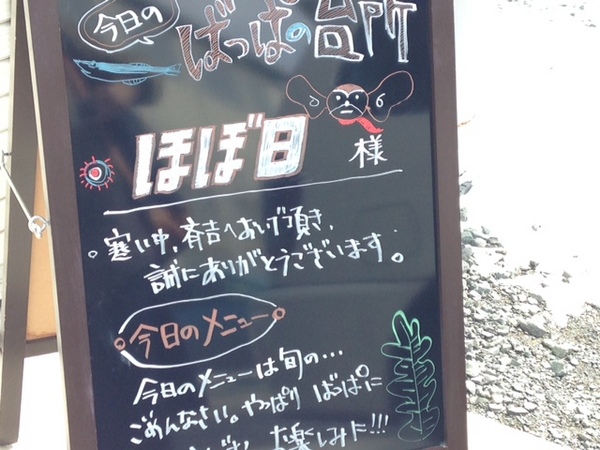 今日の
ばっぱの台所
ほぼ日
様
。寒い中、斉吉へおいで頂き、
誠にありがとうございます。
今日のメニュー
今日のメニューは旬の…
ごめんなさい。やっぱり ばっぱに
お楽しみに!!!